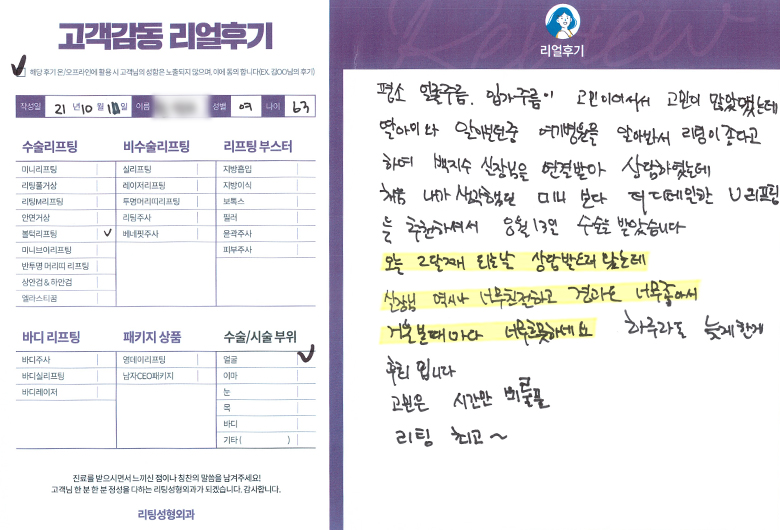 고객감동 리얼후기
해당 후기 온/오프라인에 활용 시 고객님의 성함은 노출되지 않으며, 이에 동의 합니다(EX. 김OO님의 후기)
작성일 21년 10월 일 이름 성별 여 나이 63
수술리프팅
미니리프팅
리팅풀거상
리팅M리프팅
안면거상
볼턱리프팅
미니브이리프팅
반투명 머리띠 리프팅
상안검 & 하안검
엘라스티꿈
비수술리프팅
실리프팅
레이저리프팅
투명머리띠리프팅
리팅주사
베네핏주사
리프팅 부스터
지방흡입
지방이식
보톡스
필러
윤곽주사
피부주사
바디 리프팅
바디주사
바디실리프팅
바디레이저
패키지 상품
명데이리프팅
남자CEO패키지
수술/시술 부위
얼굴
이마
눈
목
바디
기타 ( )
진료를 받으시면서 느끼신 점이나 칭찬의 말씀을 남겨주세요!
고객님 한 분 한 분 정성을 다하는 리팅성형외과가 되겠습니다. 감사합니다.
리팅성형외과
Review
리얼후기
평소 얼굴주름, 입가주름이 고민이여서 고민이 많았었는데
딸아이와 알아보던중 여기병원을 알아봐서 리팅이 좋다고
하여 백지수 실장님을 연결받아 상담하였는데
처음 내가 생각했던 미니 보다 더 디테일한 U리프팅
을 추천하셔서 8월 13일 수술을 받았습니다
오늘 2달째 되는날 상담받으러 왔는데
실장님 역시나 너무친절하고 결과도 너무좋아서
거울볼때마다 너무흐뭇하네요 하루라도 늦게한게
후회 됩니다
고민은 시간만 버릴뿐
리팅 최고~